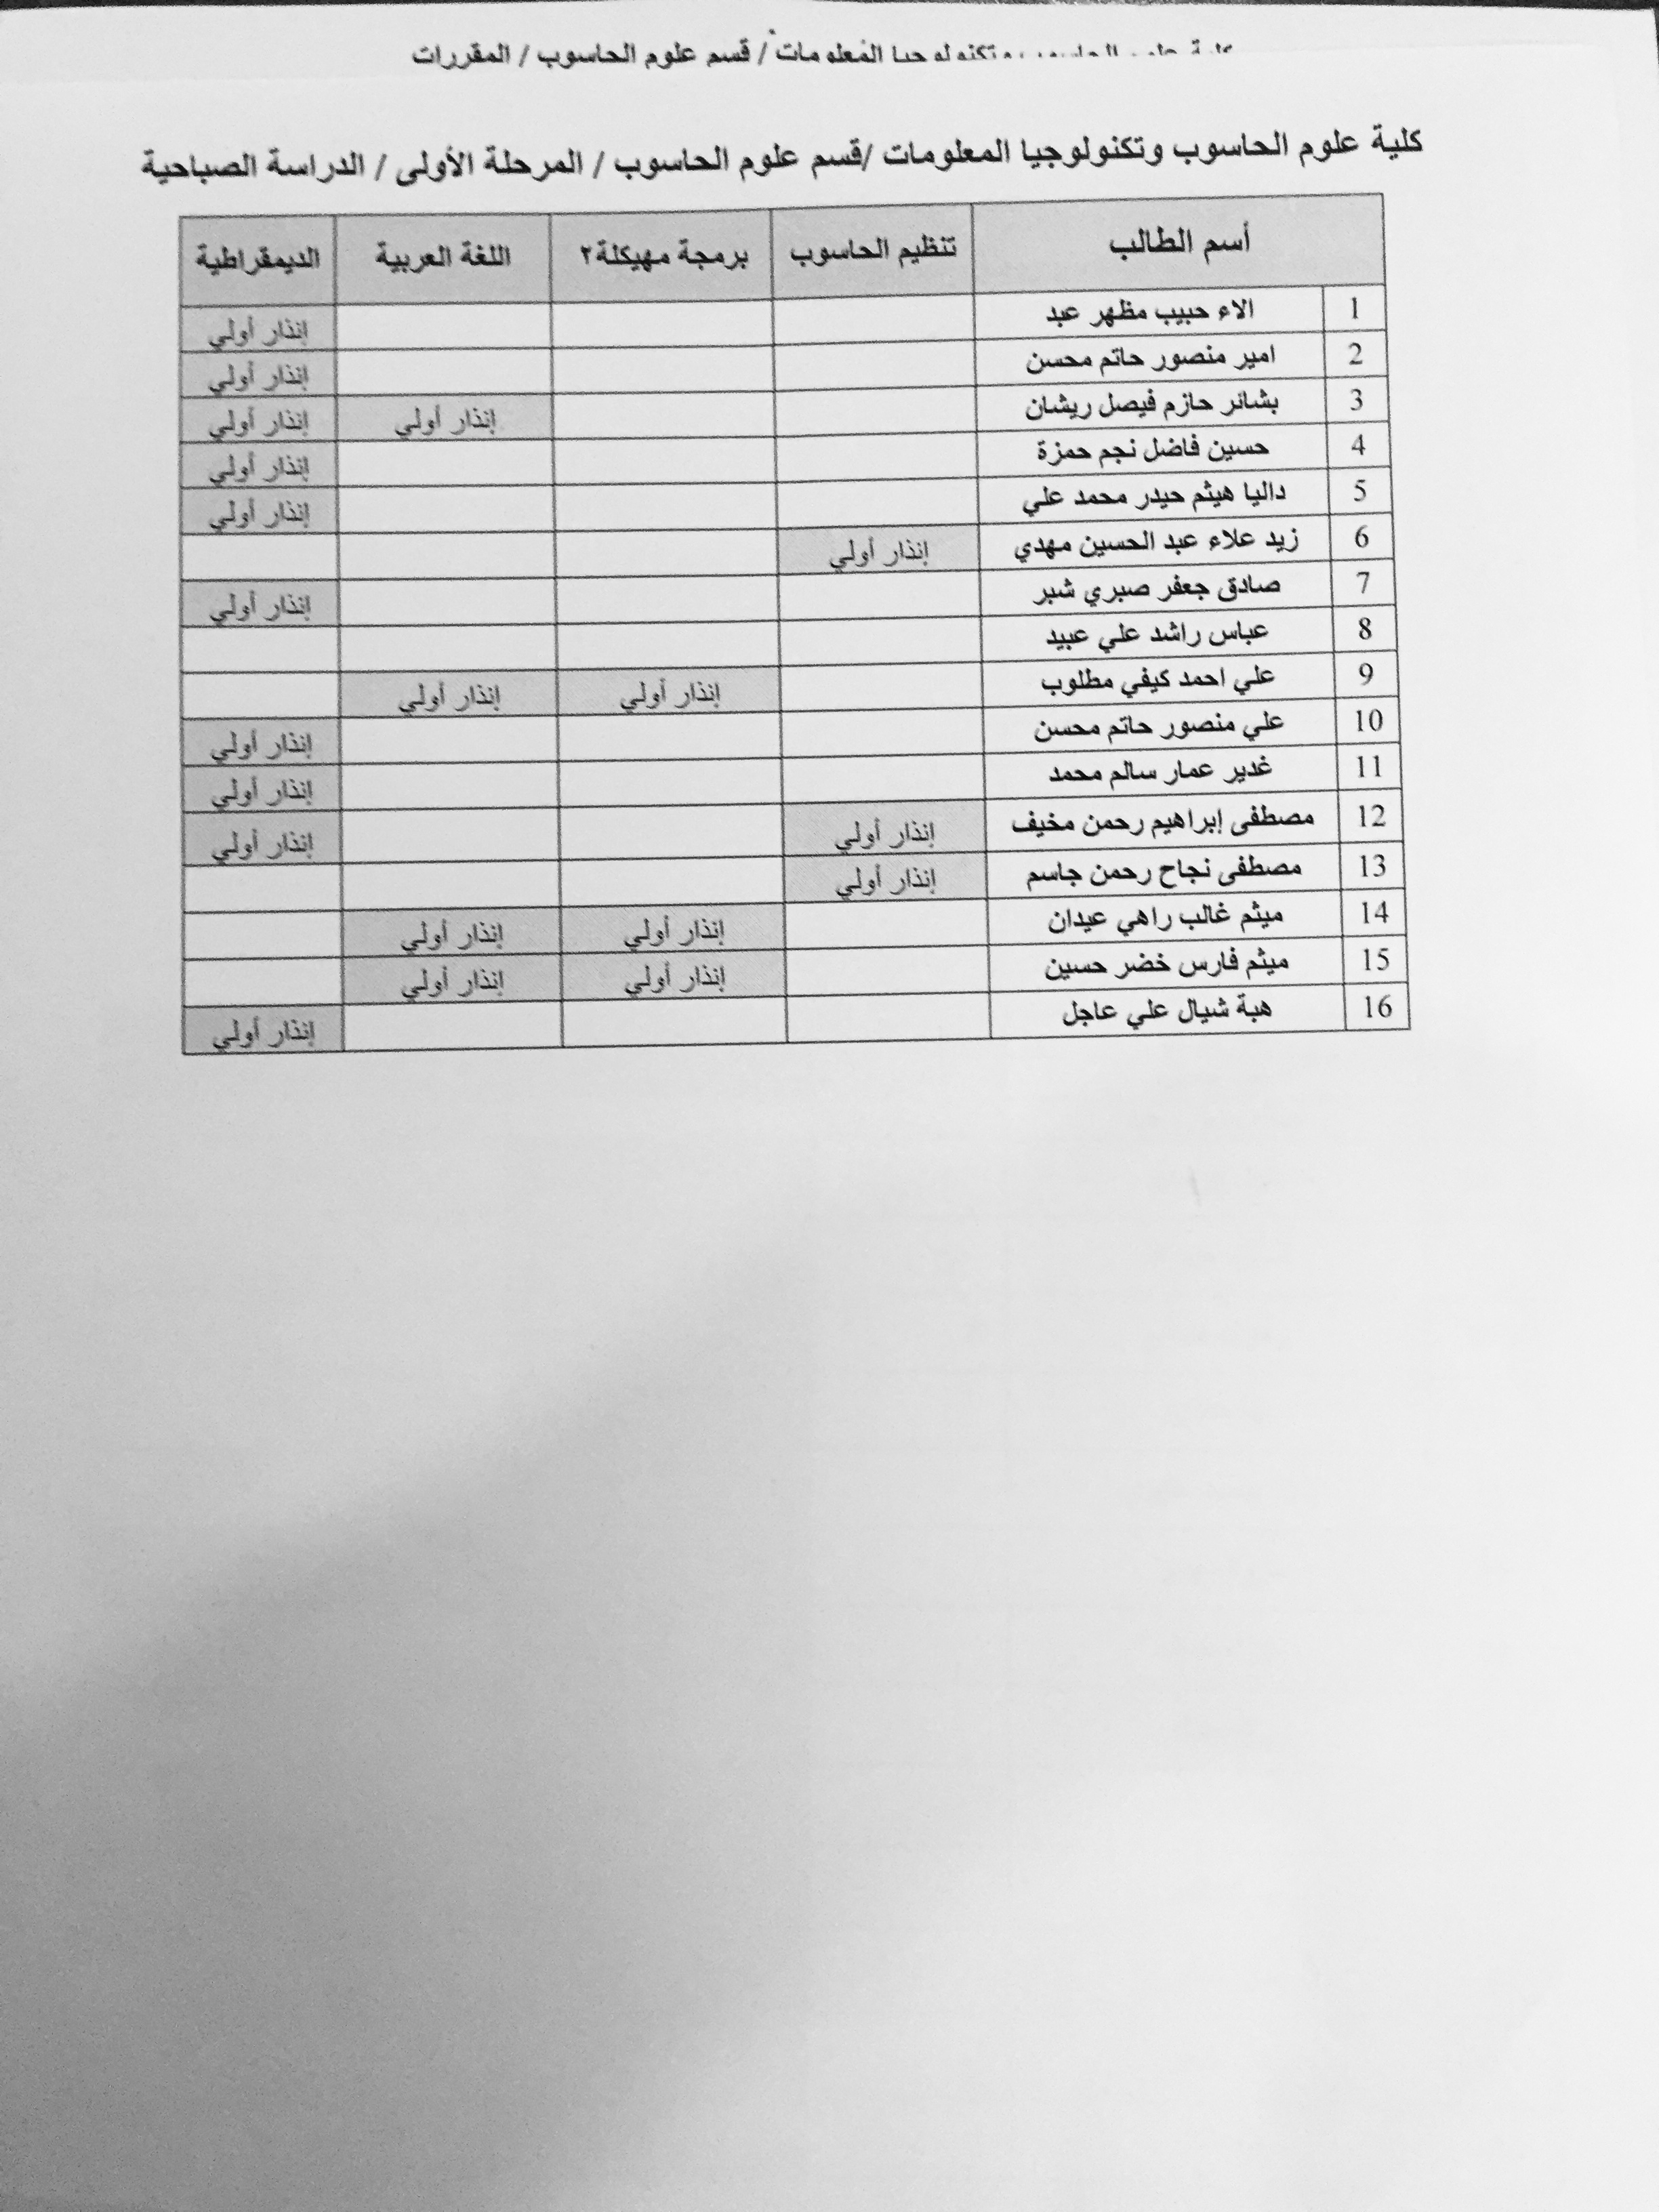 المعلومات / قسم علوم الحاسوب / المقررات
كلية علوم الحاسوب وتكنولوجيا المعلومات /قسم علوم الحاسوب / المرحلة الأولى / الدراسة الصباحية
أسم الطالب تنظيم الحاسوب برمجة مهيكلة٢ اللغة العربية الديمقراطية
1 الاء حبيب مظهر عبد إنذار أولي
2 امير منصور حاتم محسن إنذار أولي
3 بشائر حازم فيصل ريشان إنذار أولي إنذار أولي
4 حسين فاضل نجم حمزة إنذار أولي
5 داليا هيثم حيدر محمد علي إنذار أولي
6 زيد علاء عبد الحسين مهدي إنذار أولي
7 صادق جعفر صبري شبر إنذار أولي
8 عباس راشد علي عبيد
9 علي احمد كيفي مطلوب إنذار أولي إنذار أولي
10 علي منصور حاتم محسن إنذار أولي
11 غدير عمار سالم محمد إنذار أولي
12 مصطفى إبراهيم رحمن مخيف إنذار أولي إنذار أولي
13 مصطفى نجاح رحمن جاسم إنذار أولي
14 ميثم غالب راهي عيدان إنذار أولي إنذار أولي
15 ميثم فارس خضر حسين إنذار أولي إنذار أولي
16 هبة شيال علي عاجل إنذار أولي